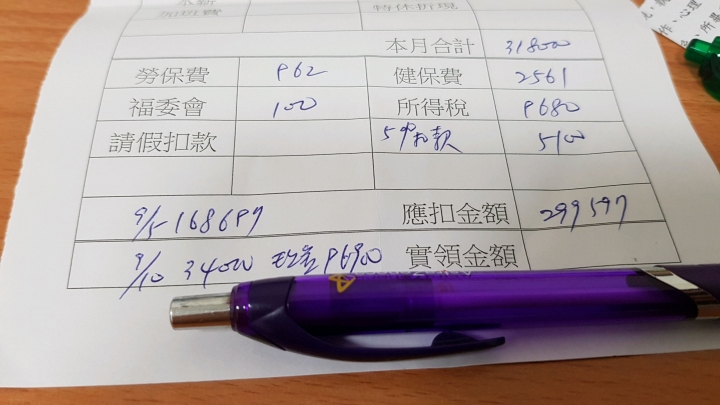 加班費 特休折現
本月合計 318000
勞保費 962 健保費 2561
福委會 100 所得稅 9680
請假扣款 5%扣款 5100
9/5-168697 應扣金額 299597
9/10 34000 96900 實領金額
作、心理